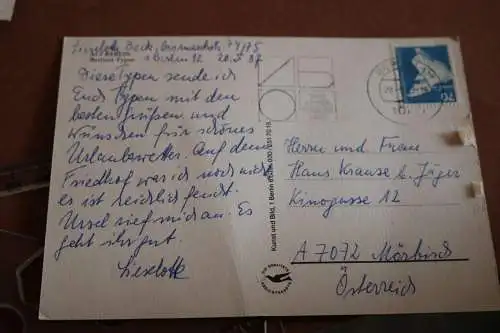 Lieselotte Beck, Bismarckstr. 74/75
1 Berlin 12 20.5.87
Diese Typen sende ich
Euch Typen mit den
besten Grüßen und
wünschen für schönes
Urlaubswetter. Auf dem
Friedhof war ich noch nicht
es ist reichlich feucht.
Ursel rief mich an. Es
geht ihr gut.
Lieselotte
Kunst und Bild, 1 Berlin
Herrn und Frau
Hans Krause b. Jäger
Kinogasse 12
A 7072 Mörbisch
Österreich